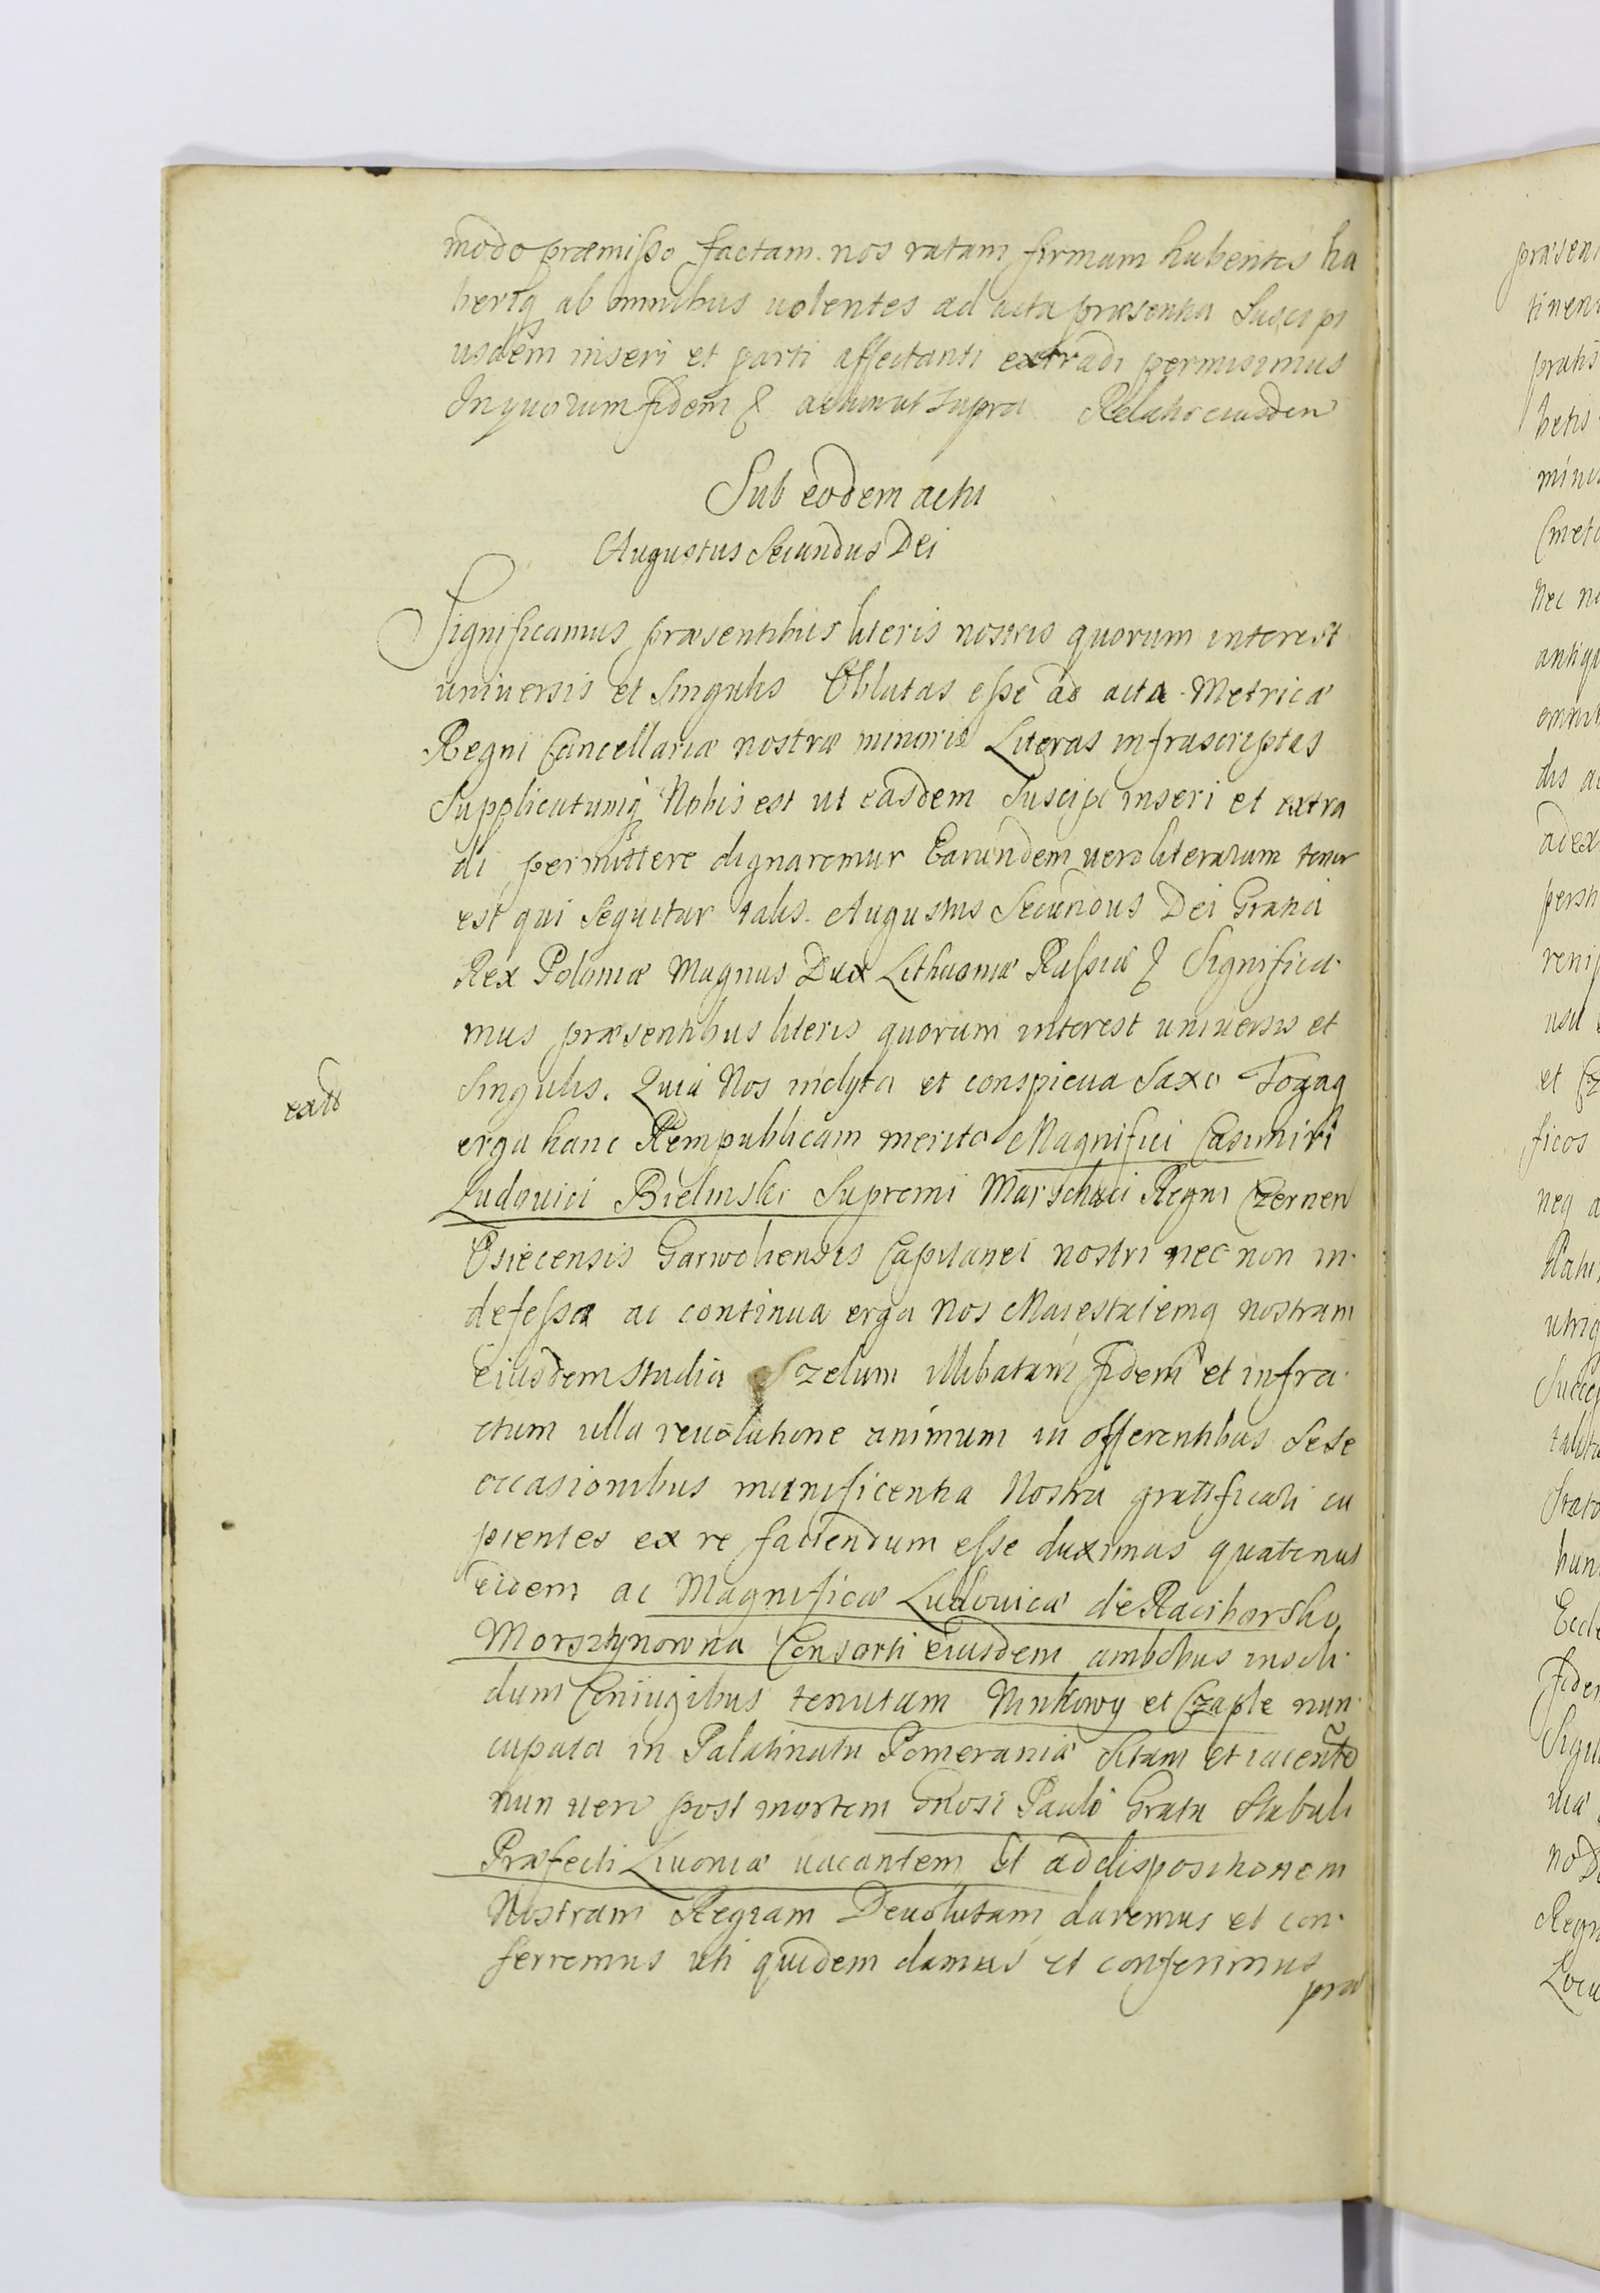 modo præmisso factam nos ratam firmam habentes ha
beriq ab omnibus volentes ad acta præsentia Suscipi
usdem inseri et parti affectanti extradi permisimus
In quorum fidem & actum ut supra Relatio eiusdem
Sub eodem actu
Augustus Secundus Dei
Significamus præsentibus literis nostris quorum interest
universis et singulis Oblatas esse ad acta Metricæ
Regni Cancellariæ nostræ minoris Literas infrascriptas
Supplicatumq Nobis est ut easdem Suscipi inseri et extra
di permittere dignaremur Earundem vero literarum tenor
est qui sequitur talis. Augustus Secundus Dei Gratia
Rex Poloniæ Magnus Dux Lithuaniæ Russiæ & Significa
mus præsentibus literis quorum interest universis et
extr
Singulis. Quia Nos inclyta et conspicua Saxo Togaq
erga hanc Rempublicam merita Magnifici Casimiri
Ludovici Bielinski Supremi Marschalci Regni Czernen
Osiecensis Garwoliensis Capitanei nostri nec non in
defessa ac continua erga Nos Maiestatemq nostram
eiusdem studia zelum illibatam fidem et infra
ctum ulla revolutione animum in offerentibus sese
occasionibus munificentia Nostra gratificari cu
pientes ex re faciendum esse duximus quatenus
eidem ac Magnificæ Ludovicæ de Raciborsko
Morsztynowna Consorti eiusdem ambobus insoli
dum Coniugibus tenutam Ninkowy et Czaple nun
cupata in Palatinatu Pomeraniæ Sitam et iacente
nun vero post mortem Gnosi Pauli Grata Stabuli
Præfecti Livoniæ vacantem et ad dispositionem
Nostram Regiam Devolutam daremus et con
ferremus uti quidem damus et conferimus
præ